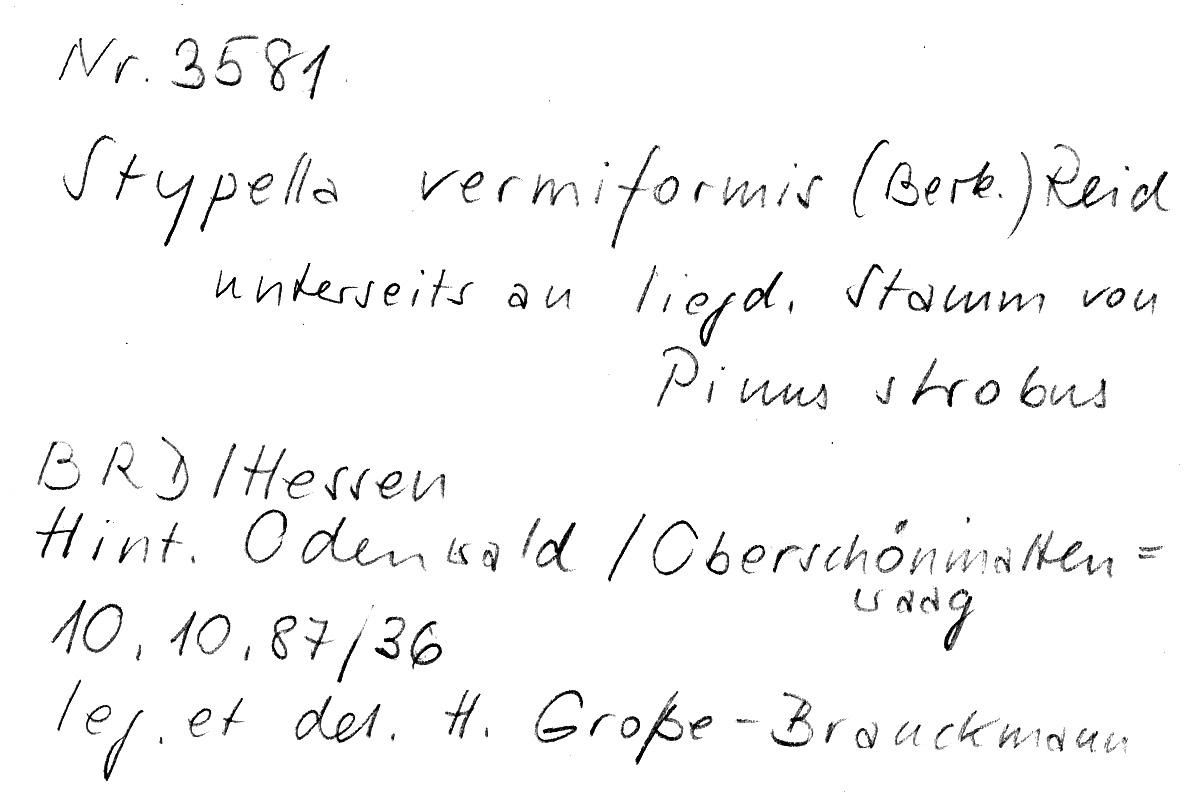 Nr. 3581
Stypella vermiformis (Berk.) Reid
unterseits an liegd. Stamm von
Pinus strobus
BRD/Hessen
Hint. Odenwald / Oberschönmatten=
waag
10.10.87/36
leg. et det. H. Große-Brauckmann